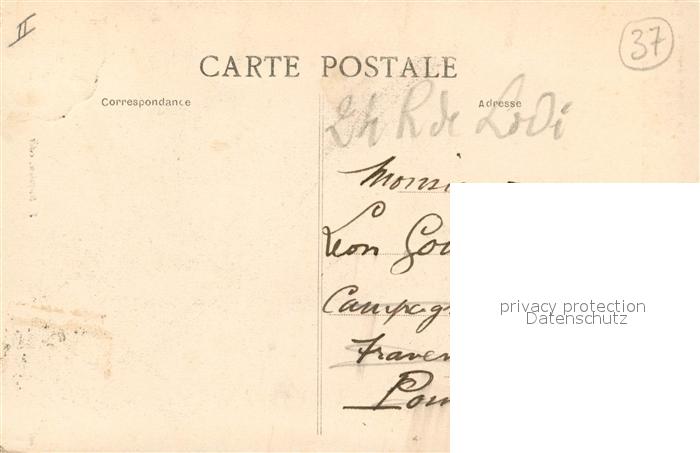 II
37
CARTE POSTALE
Correspondance
Adresse
24 R de Lodi
Monsi
Léon Gou
Campag
Traver
privacy protection
Datenschutz